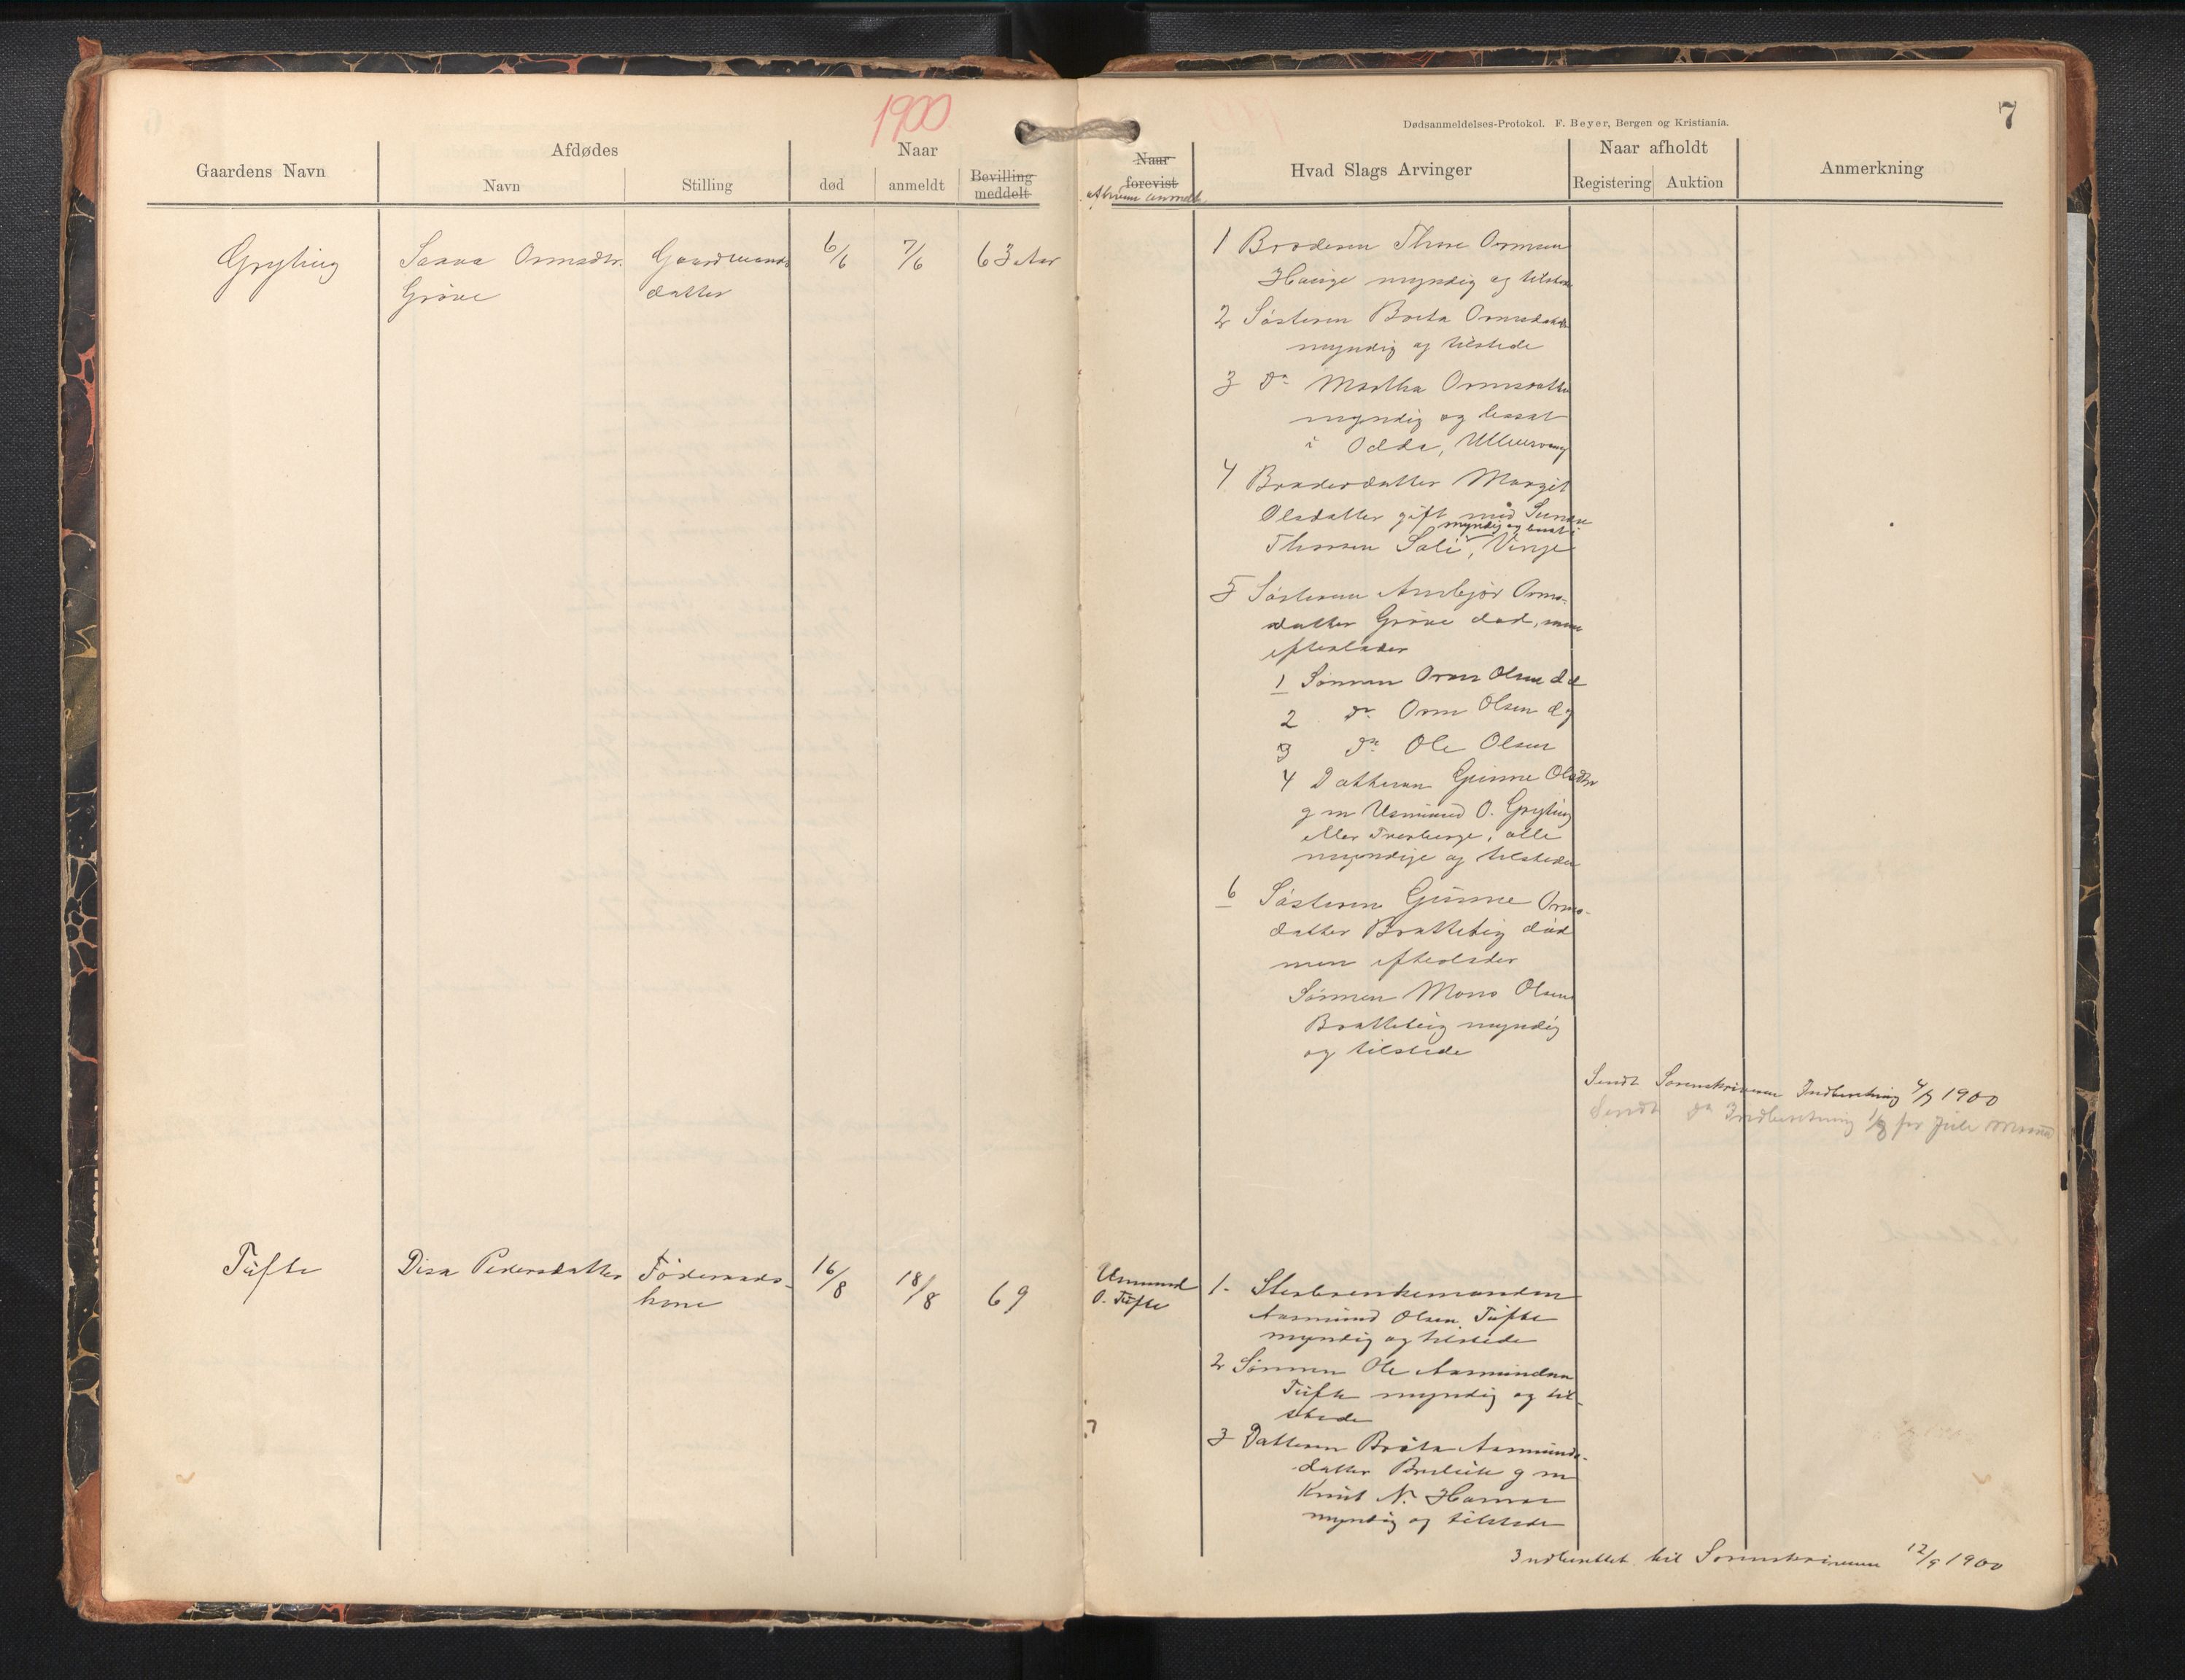 1900
7
Dødsanmeldelses-Protokol. F. Beyer, Bergen og Kristiania.
Gaardens Navn
Afdødes
Navn
Stilling
Naar
død
anmeldt
Bevilling
meddelt
Naar
forevist
Af hvem anmeldt
Hvad Slags Arvinger
Naar afholdt
Registering
Auktion
Anmerkning
Gryting
Ormsdtr.
Grove
Gaardmands
datter
6/6
7/6
63 Aar
1 Broderen Thore Ormsen
Hauge myndig og tilstede
2 Søsteren Brita Ormsdatter
myndig og tilstede
3 Do Martha Ormsdatter
myndig og bosat
i Odda, Ullensvang
4 Broderdatter Margit
Olsdatter gift med
myndig og bosat i
Thorsen Vinje
5 Søsteren Ambjør Orms-
datter Grove død, men
efterlader
1 Sønnen Orm Olsen d e
2 Do Orm Olsen d y
3 Do Ole Olsen
4 Datteren Gunne Olsdtr
g m Osmund O. Gryting
eller alle
myndige og tilstede
6 Søsteren Gunne Orms-
datter Bratteteig død
men efterlader
Sønnen Mons Olsen
Bratteteig myndig
og tilstede
Sendt Sorenskriveren Indberetning 4/7 1900
Sendt do Indberetning 1/8 for Juli Maaned
Tufte
Disa Pedersdatter
Føderaads-
kone
16/8
18/8
69
Osmund
O. Tufte
1. Sterbeenkemanden
Aasmund Olsen Tufte
myndig og tilstede
2 Sønnen Ole Aasmundsen
Tufte myndig og til-
stede
3 Datteren Brita Aasmunds-
datter g m
Knut N. Hamre
myndig og tilstede
Indberettet til Sorenskriveren 12/9 1900